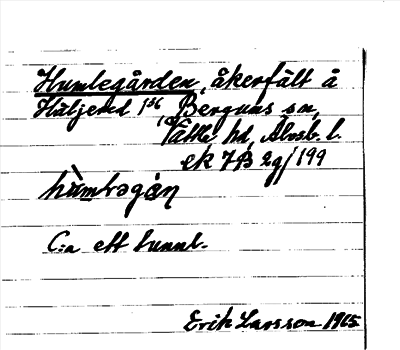 Humlegården, åkerfält å
Häljered 1⁵⁶, Bergums sn,
Vättle hd, Älvsb. l.
ek 7B 2g/199
hùmləgàṇ
C:a ett tunnl.
Erik Larsson 1965